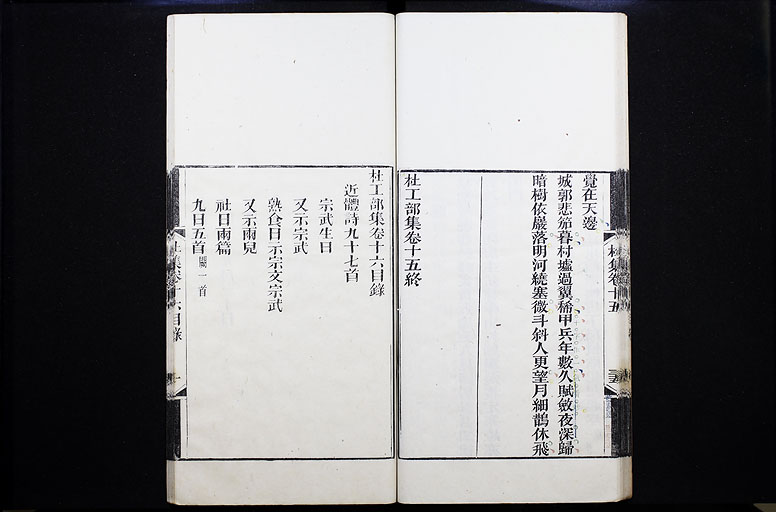 杜集卷十五
覺在天邊
城郭悲笳暮村墟過翼稀甲兵年數久賦斂夜深歸
暗樹依巖落明河繞塞微斗斜人更望月細鵲休飛
杜工部集卷十五終
杜工部集卷十六目錄
近體詩九十七首
宗武生日
又示宗武
熟食日示宗文宗武
又示兩兒
社日兩篇
九日五首 闕一首
杜集卷十六目錄
一